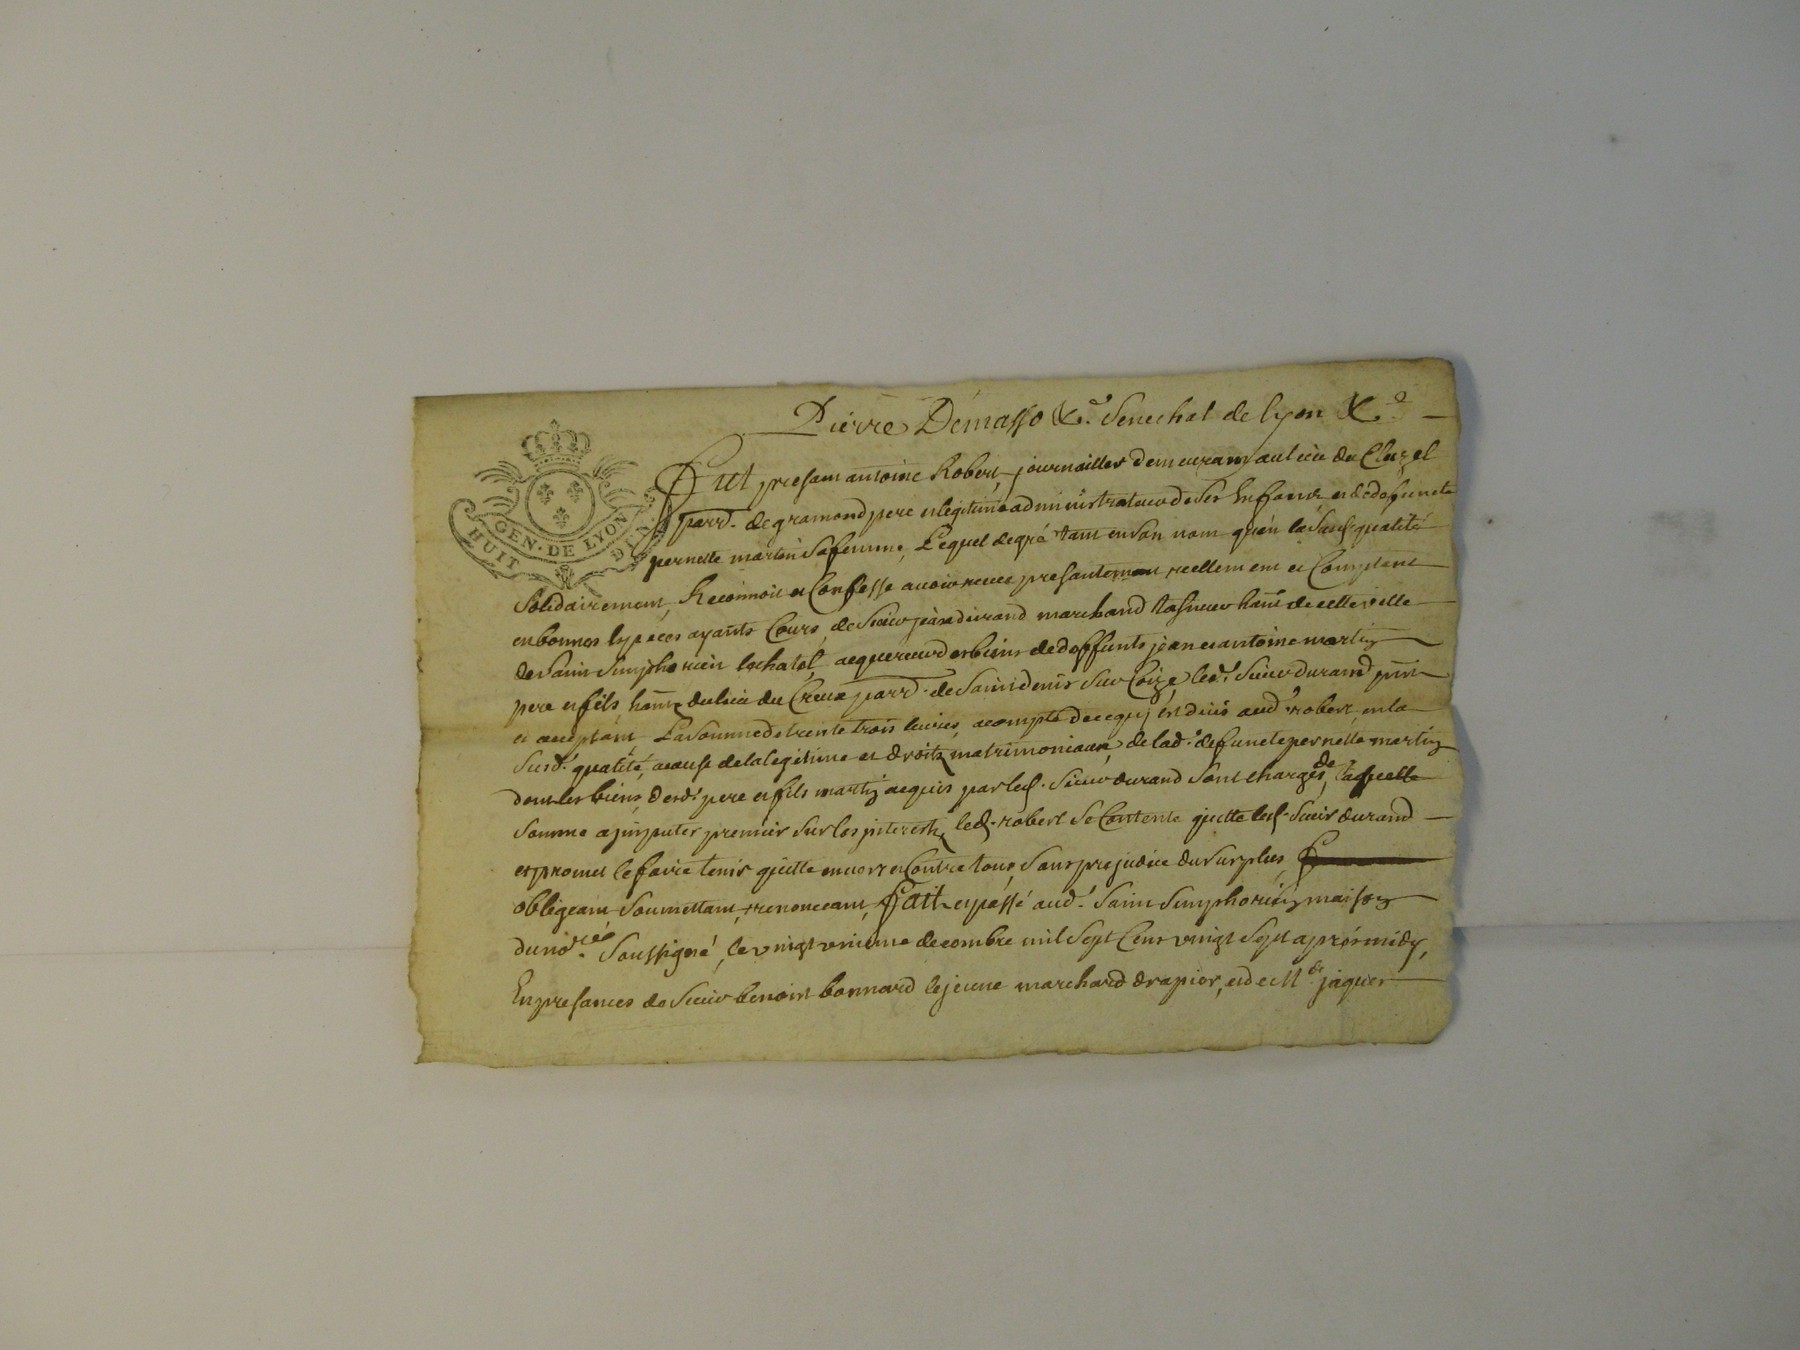 Pierre Demasso &c.ᵃ Senechal de lyon &c.ᵃ
GEN · DE LYON
HUIT DEN.
Fut presant antoine Robert, journallier demeurant au lieu du Cluzel
parr.ᵉ de gramond pere et legitime administrateur de ses Enfants et de defuncte
pernette martin sa femme, Lequel de gré tant en son nom qu'en la susd. qualité
Solidairement, Reconnoit et Confesse avoir receu presantement reellement et Comptant
en bonnes Especes ayants Cours, de Sieur jean durand marchand taneur hant de cette ville
de Saint Simphorien lechatel, acquereur des biens de deffunts jean et antoine martin
pere et fils hants du lieu du Creux parr.ᵉ de Saint denis sur Coize, led.ᵗ Sieur durand pnt
et acceptant, La Somme de trente trois livres, a compte de ce qui est deu aud.ᵗ robert en la
susd.ᵉ qualité, a cause de la legitime et droits matrimoniaux, de lad.ᵉ defuncte pernette martin
dont les biens desd.ᵗ pere et fils martin acquis par led. Sieur durand sont chargés, de laquelle
somme a jmputer premier sur les jnterests, led. robert se Contente quitte led. Sieur durand
et promet le faire tenir quitte envers et Contre tous, Sans prejudice du surplus,
obligeant soumettant, renonceant, Fait et passé aud.ᵗ Saint Simphorien maison
du no.ʳᵉ Soussigné, le vingt unieme decembre mil Sept Cent vingt Sept aprés midy,
En presances de Sieur benoist bonnard lejeune marchand drapier, et de Mᵉ jaques